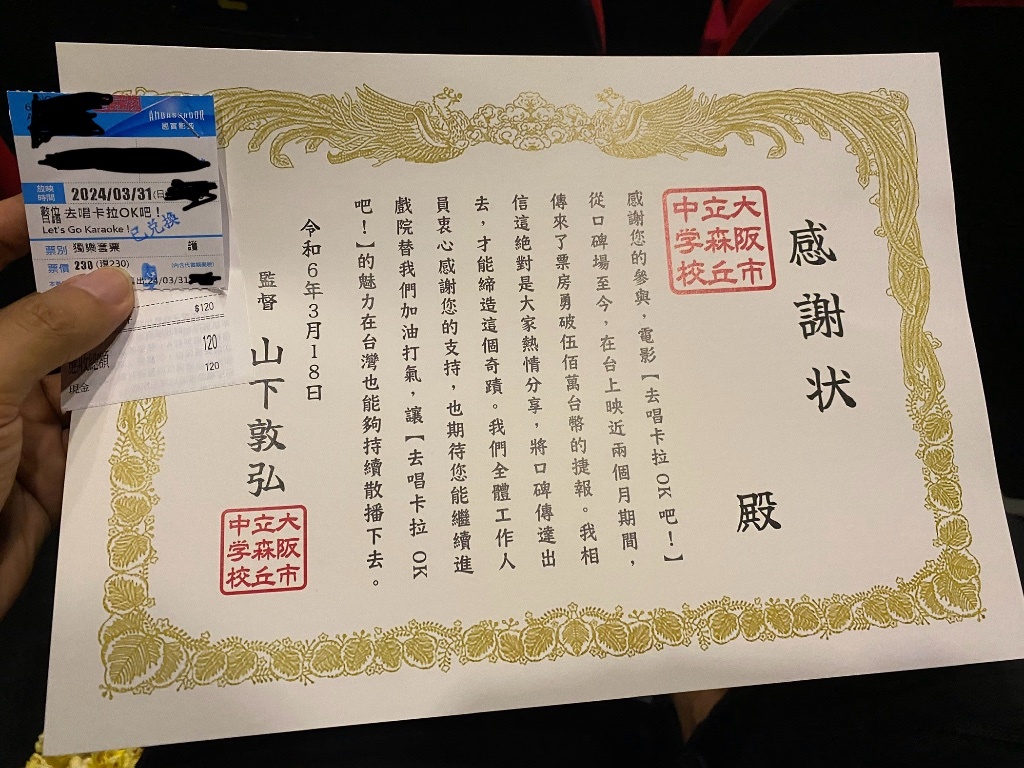 感謝状
殿
大阪市
立森丘
中学校
感謝您的參與，電影【去唱卡拉 OK 吧！】
從口碑場至今，在台上映近兩個月期間，
傳來了票房勇破伍佰萬台幣的捷報。我相
信這絕對是大家熱情分享，將口碑傳達出
去，才能締造這個奇蹟。我們全體工作人
員衷心感謝您的支持，也期待您能繼續進
戲院替我們加油打氣，讓【去唱卡拉 OK
吧！】的魅力在台灣也能夠持續散播下去。
令和6年3月18日
監督 山下敦弘
大阪市
立森丘
中学校
AMBASSADOR
國賓影城
放映
時間
2024/03/31(日
去唱卡拉OK吧！
Let's Go Karaoke!
已兌換
票別 獨樂套票
票價 230
$120
120
現金
120